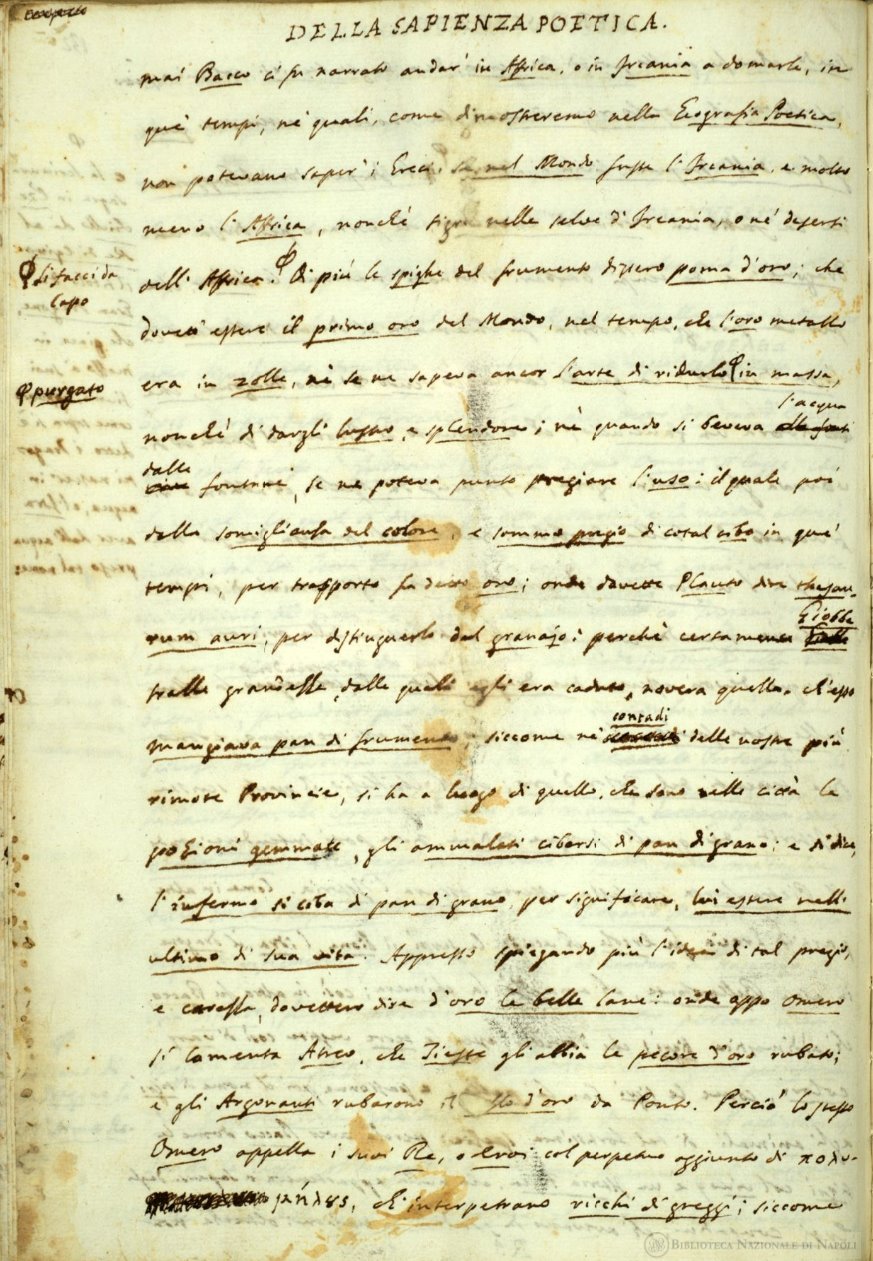 DELLA SAPIENZA POETICA.
mai Bacco ci fu narrato andar' in Affrica, o in Ircania a domarle, in
que' tempi, ne' quali, come dimostreremo nella Geografia Poetica,
non potevano saper' i Greci, se nel Mondo fusse l'Ircania, e molto
meno l'Affrica, nonchè tigri nelle selve d'Ircania, o ne' deserti
dell' Affrica. Di più le spighe del frumento dissero poma d'oro; che
dovett' essere il primo oro del Mondo, nel tempo, che l'oro metallo
era in zolle, nè se ne sapeva ancor l'arte di ridurlo in massa,
nonchè di dargli lustro, e splendore; nè quando si beveva l'acqua
dalle fontane, se ne poteva punto pregiare l'uso: il quale poi
dalla somiglianza del colore, e sommo pregio di cotal cibo in que'
tempi, per trasporto fu detto oro; onde dovette Plauto dire thesau-
rum auri, per distinguerlo dal granajo: perchè certamente Giobbe
tralle grandezze, dalle quali egli era caduto, novera quella, ch'esso
mangiava pan di frumento; siccome ne' contadi delle nostre più
rimote Provincie, si ha a luogo di quello, che sono nelle città le
pozioni gemmate, gli ammalati cibarsi di pan di grano; e si dice,
l'infermo si ciba di pan di grano, per significare, lui essere nell'
ultimo di sua vita. Appresso spiegando più l'idea di tal pregio,
e carezza, dovettero dire d'oro le belle lane: onde appo Omero
si lamenta Atreo, che Tieste gli abbia le pecore d'oro rubato;
e gli Argonauti rubarono il vello d'oro da Ponto. Perciò lo stesso
Omero appella i suoi Re, o Eroi col perpetuo aggiunto di πολυ-
μήλους, ch'interpetrano ricchi di greggi; siccome
φ si facci da
Capo
φ purgato
BIBLIOTECA NAZIONALE DI NAPOLI